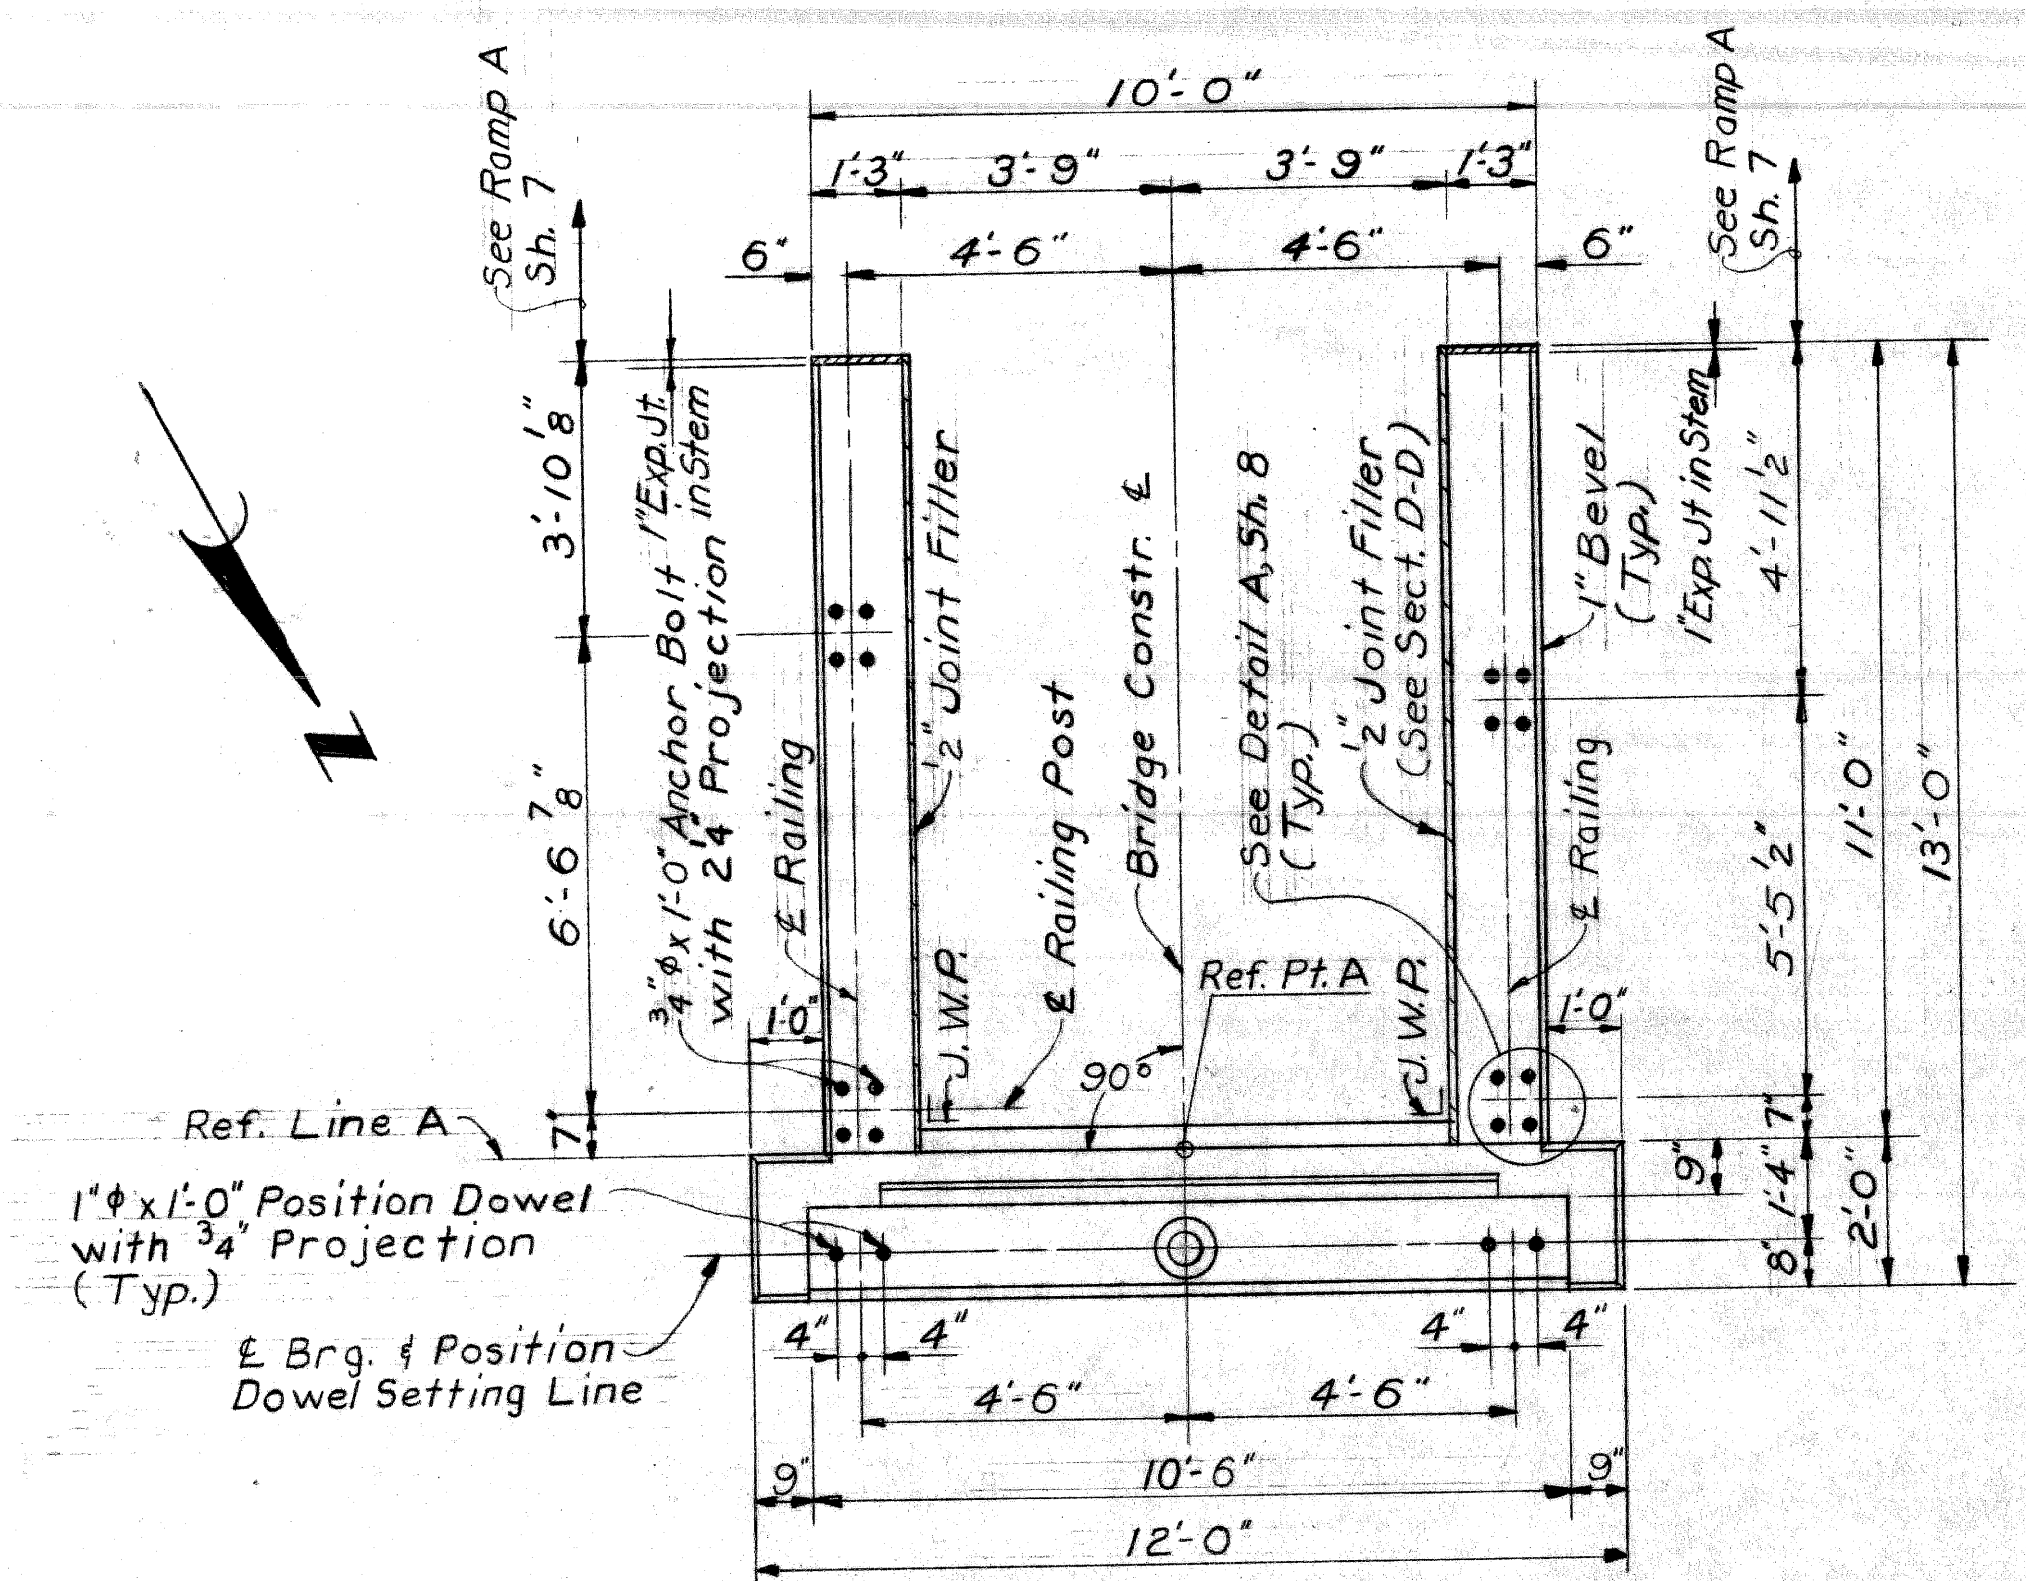 10'-0"
1'-3"
3'-9"
3'-9"
1'-3"
6"
4'-6"
4'-6"
6"
See Ramp A
Sh. 7
See Ramp A
Sh. 7
3'-10 1/8"
6'-6 7/8"
7"
1" Exp. Jt.
in Stem
3/4" ϕ x 1'-0" Anchor Bolt
with 2 1/4" Projection
℄ Railing
1/2" Joint Filler
J.W.P.
℄ Railing Post
Bridge Constr. ℄
See Detail A, Sh. 8
(Typ.)
1/2" Joint Filler
(See Sect. D-D)
J.W.P.
1" Bevel
(Typ.)
1" Exp. Jt in Stem
℄ Railing
4'-11 1/2"
5'-5 1/2"
7"
11'-0"
13'-0"
1'-0"
1'-0"
90°
Ref. Pt. A
Ref. Line A
9"
1'-4"
8"
2'-0"
1" ϕ x 1'-0" Position Dowel
with 3/4" Projection
(Typ.)
℄ Brg. & Position
Dowel Setting Line
4"
4"
4"
4"
4'-6"
4'-6"
9"
10'-6"
9"
12'-0"
N